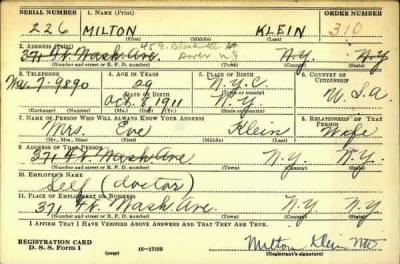 SERIAL NUMBER 1. NAME (Print) ORDER NUMBER
226 MILTON KLEIN 310
(First) (Middle) (Last)
2. ADDRESS (Print) 45 Blackwell St
Dover N.J.
371 Ft. Wash Ave. N.Y. N.Y.
(Number and street or R. F. D. number) (Town) (County) (State)
3. TELEPHONE 4. AGE IN YEARS 5. PLACE OF BIRTH 6. COUNTRY OF CITIZENSHIP
Wa. 7-9890 29 N.Y.C.
DATE OF BIRTH
Oct. 8, 1911 N.Y. U.S.A
(Exchange) (Number) (Mo.) (Day) (Yr.) (State or country)
7. NAME OF PERSON WHO WILL ALWAYS KNOW YOUR ADDRESS 8. RELATIONSHIP OF THAT PERSON
Mrs. Eve Klein Wife
(Mr., Mrs., Miss) (First) (Middle) (Last)
9. ADDRESS OF THAT PERSON
371 Ft. Wash Ave N.Y. N.Y.
(Number and street or R. F. D. number) (Town) (County) (State)
10. EMPLOYER'S NAME
Self (doctor)
11. PLACE OF EMPLOYMENT OR BUSINESS
371 Ft. Wash Ave. N.Y. N.Y.
(Number and street or R. F. D. number) (Town) (County) (State)
I AFFIRM THAT I HAVE VERIFIED ABOVE ANSWERS AND THAT THEY ARE TRUE.
REGISTRATION CARD
D. S. S. Form 1 (over) 16-17105 Milton Klein MD
(Registrant's signature)